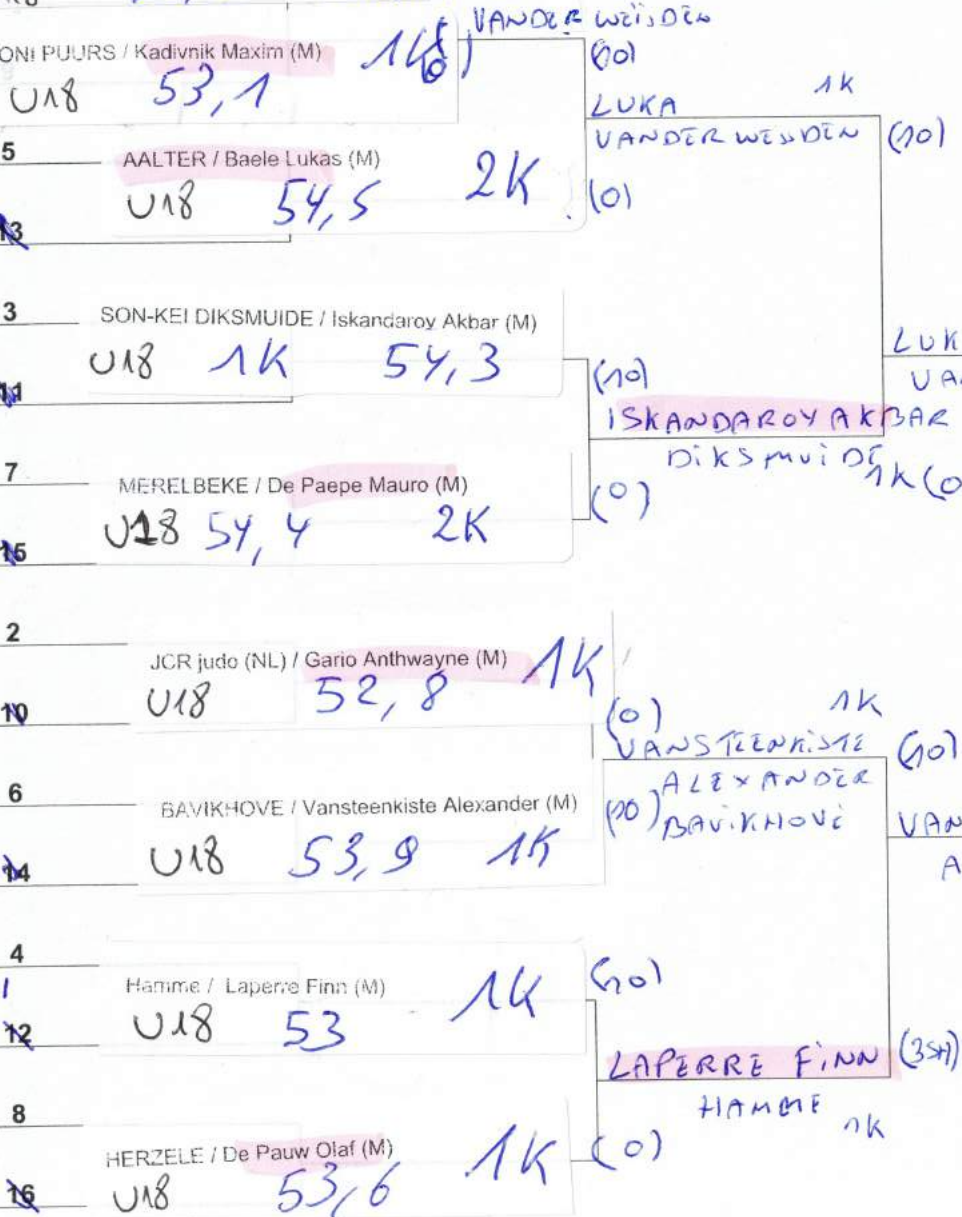 ONI PUURS / Kadivnik Maxim (M) 1K
U18 53,1
VANDER WEIJDEN
(10)
LUKA 1K
VANDER WEIJDEN (10)
5
AALTER / Baele Lukas (M)
U18 54,5 2K (0)
13
3
SON-KEI DIKSMUIDE / Iskandarov Akbar (M)
U18 1K 54,3
11
(10)
ISKANDAROV AKBAR
DIKSMUIDE 1K (0
LUK
VA
7
MERELBEKE / De Paepe Mauro (M)
U18 54,4 2K (0)
15
2
JCR judo (NL) / Gario Anthwayne (M) 1K
U18 52,8
10
(0) 1K
VANSTEENKISTE (10)
ALEXANDER
(10) BAVIKHOVE
6
BAVIKHOVE / Vansteenkiste Alexander (M)
U18 53,9 1K
14
VAN
A
4
Hamme / Laperre Finn (M) 1K (10)
U18 53
12
LAPERRE FINN (3SH)
HAMME 1K
8
HERZELE / De Pauw Olaf (M) 1K (0)
U18 53,6
16